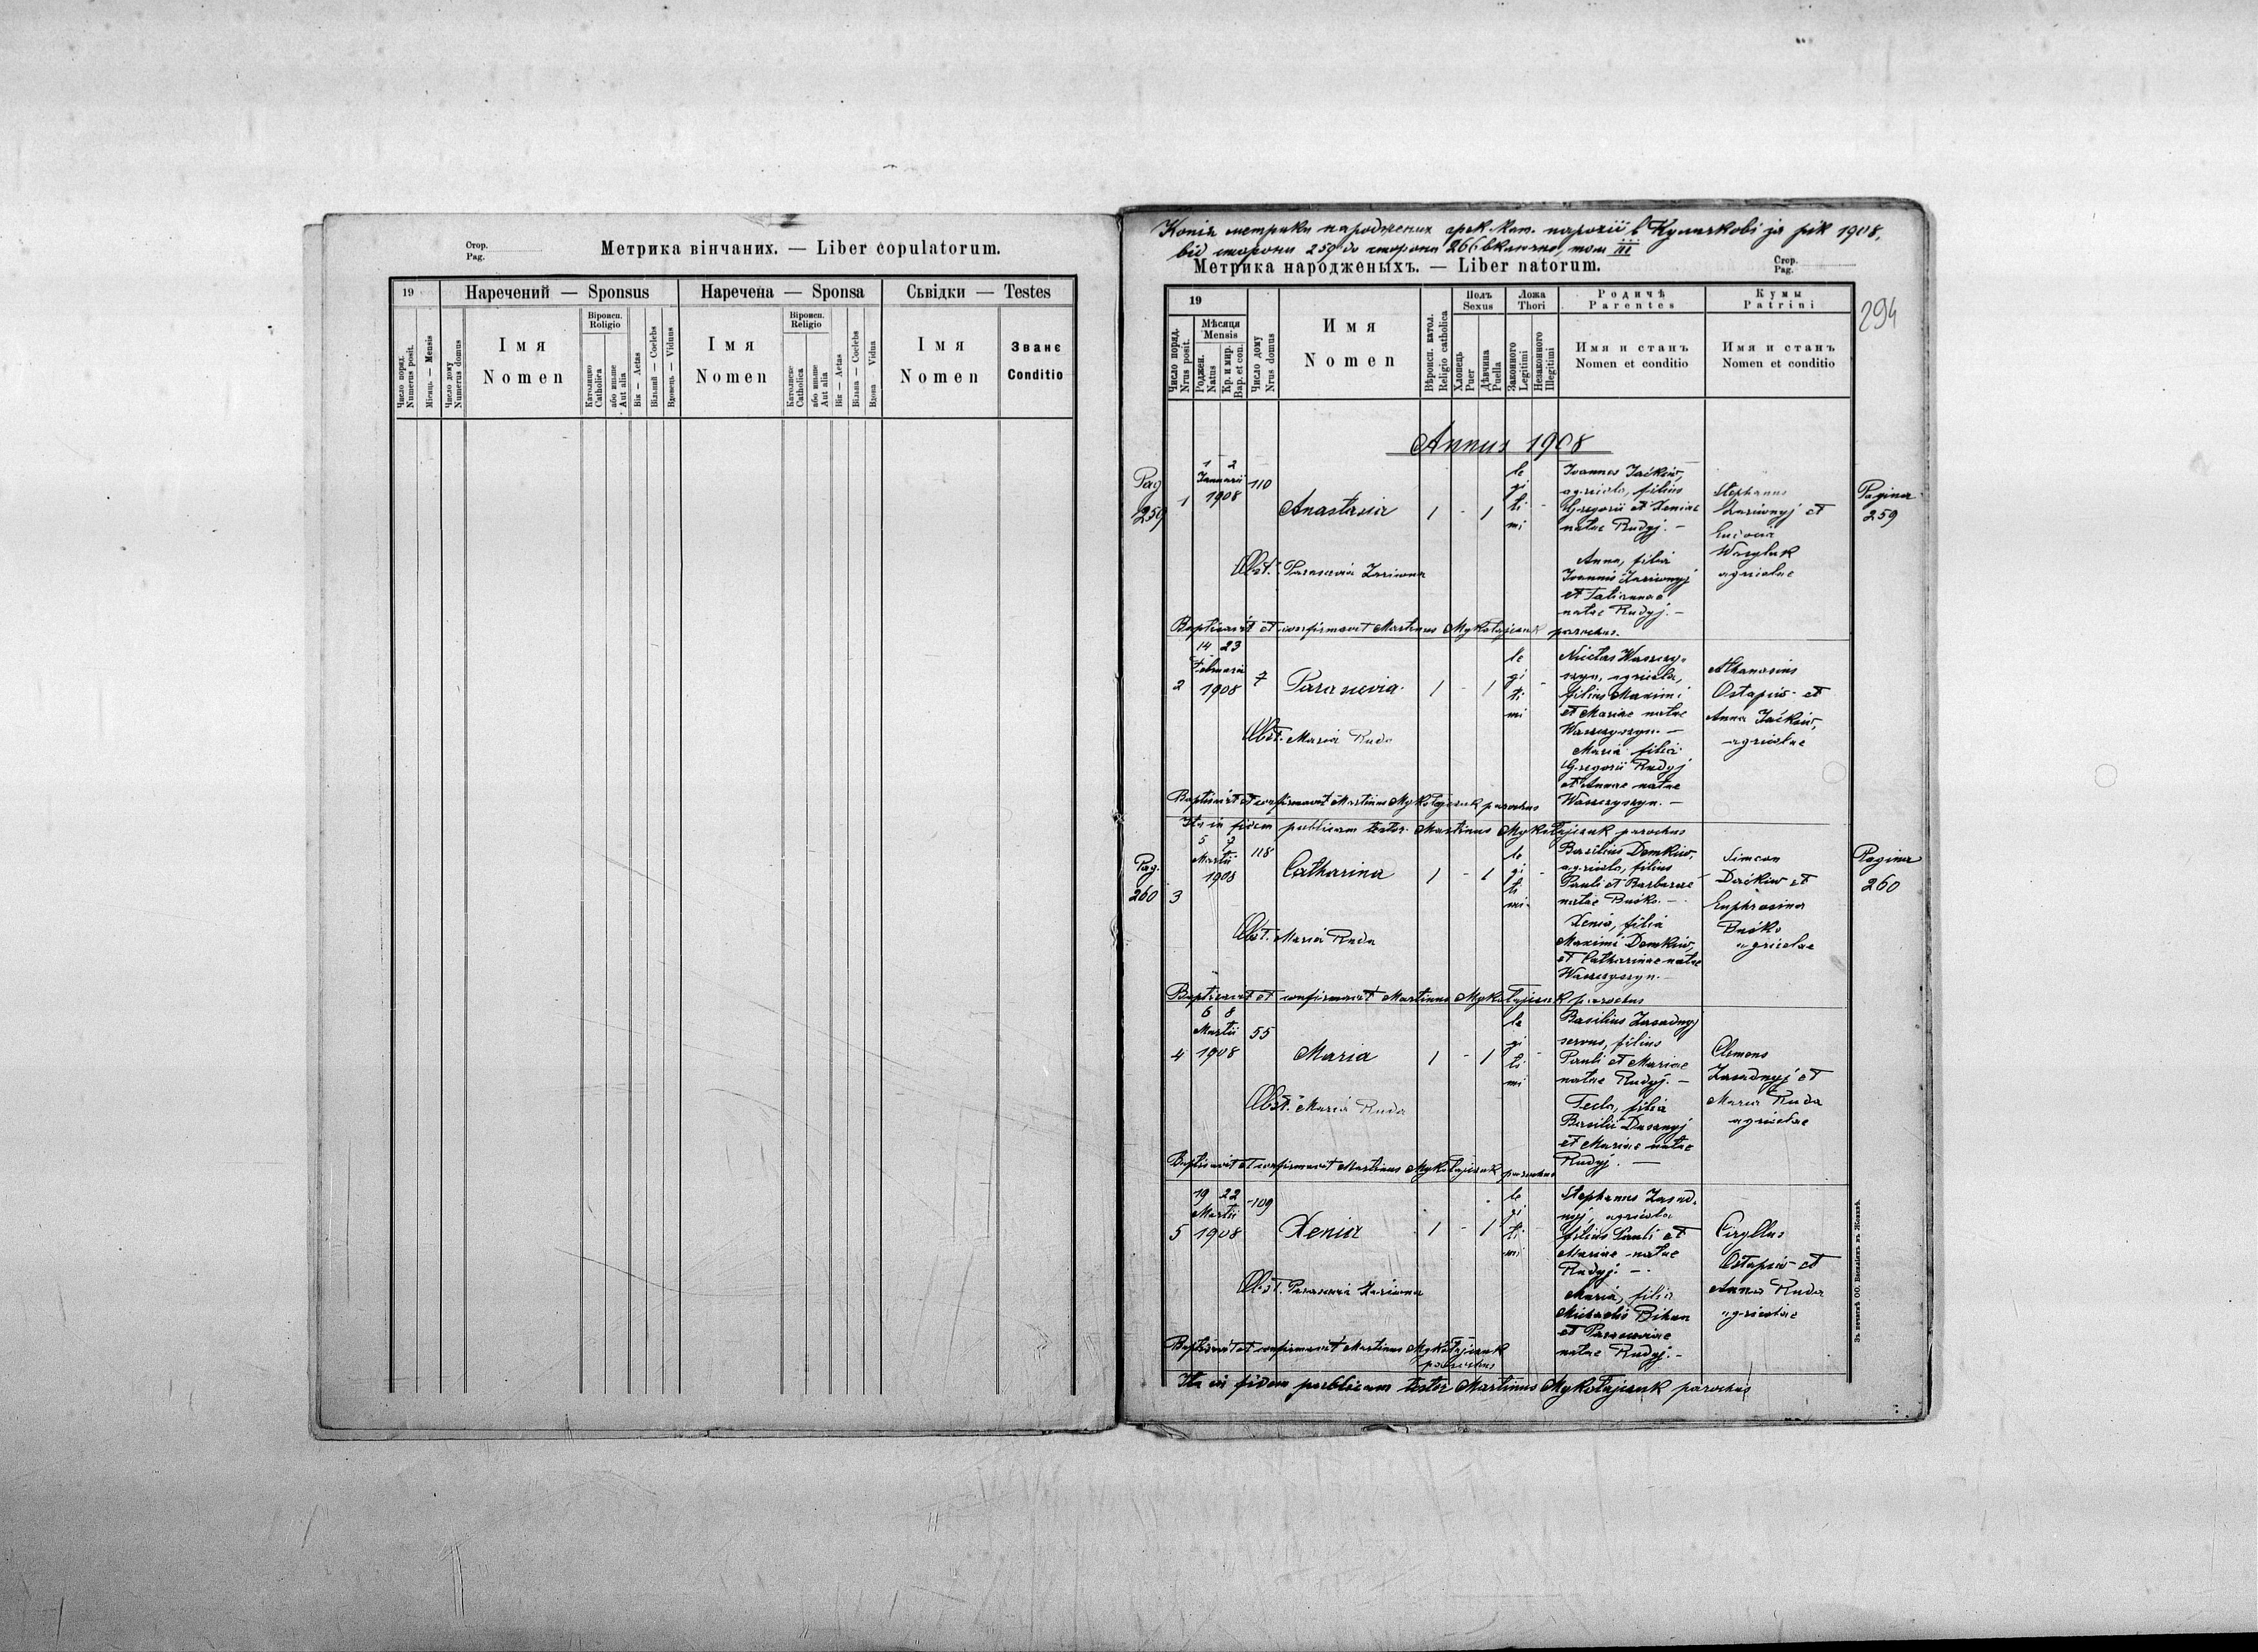 Стор.
Pag.
Метрика вінчаних. — Liber copulatorum.
19
Наречений — Sponsus
Наречена — Sponsa
Сьвідки — Testes
Число поряд.
Numerus posit.
Місяць — Mensis
Число дому
Numerus domus
Імя
Nomen
Віроисп.
Religio
Catholica
або иньше
Aut alia
Вік — Aetas
Вільний — Coelebs
Вдовець — Viduus
Імя
Nomen
Віроисп.
Religio
Catholica
або иньше
Aut alia
Вік — Aetas
Вільна — Coelebs
Вдова Vidua
Імя
Nomen
Званє
Conditio
Копія метрики народжених грек. кат. парохії в за рік 1908,
від сторони 259 до сторони 266 включно, том III
Метрика народженыхъ. — Liber natorum.
Стор.
Pag.
294
19
Число поряд.
Nrus posit.
Мѣсяця
Mensis
Роджен.
Natus
Кр. и мир.
Bap. et con.
Число дому
Nrus domus
Имя
Nomen
Вѣроисп. катол.
Religio catholica
Полъ
Sexus
Хлопець
Puer
Дѣвчина
Puella
Ложа
Thori
Законного
Legitimi
Незаконного
Illegitimi
Родичѣ
Parentes
Имя и станъ
Nomen et conditio
Кумы
Patrini
Имя и станъ
Nomen et conditio
Annus 1908
Pag
259
1
1 2
Januarii
1908
110
Anastasia
1 - 1
le
gi
ti
mi
-
Joannes Jaćkiw,
agricola, filius
Gregorii et Xeniae
natae Rudyj. —
Anna, filia
Joannis Zariwnyj
et Tatiannae
natae Rudyj. —
Stephanus
Zariwnyj et
Wasyluk
agricolae
Pagina
259
Obst. Parascevia Zariwna
Baptisavit et confirmavit Martinus Mykołajczuk parochus.
2
14 23
Februarii
1908
7
Parascevia
1 - 1
le
gi
ti
mi
-
Nicetas Waszczy-
szyn, agricola,
filius Maximi
et Mariae natae
Waszczyszyn. —
Maria filia
Gregorii Rudyj
et Annae natae
Waszczyszyn. —
Athanasius
Ostapiw et
Anna Jaćkiw,
agricolae
Obst. Maria Ruda
Baptisavit et confirmavit Martinus Mykołajczuk parochus
Ita in fidem publicam testor Martinus Mykołajczuk parochus
Pag.
260
3
5 7
Martii
1908
118
Catharina
1 - 1
le
gi
ti
mi
-
Basilius Demkiw,
agricola, filius
Pauli et Barbarae
natae Bućko. —
Xenia, filia
Maximi Demkiw,
et Catharinae natae
Waszczyszyn. —
Simeon
Daćkiw et
Euphrosina
Bućko
agricolae
Pagina
260
Obst. Maria Ruda
Baptisavit et confirmavit Martinus Mykołajczuk parochus
4
6 8
Martii
1908
55
Maria
1 - 1
le
gi
ti
mi
-
Basilius Zasadnyj
servus, filius
Pauli et Mariae
natae Rudyj. —
Tecla, filia
Basilii
et Mariae natae
Rudyj. —
Clemens
Zasadnyj et
Maria Ruda
agricolae
Obst. Maria Ruda
Baptisavit et confirmavit Martinus Mykołajczuk parochus
5
19 22
Martii
1908
109
Xenia
1 - 1
le
gi
ti
mi
-
Stephanus Zasad-
nyj, agricola
filius Pauli et
Mariae natae
Rudyj. —
Maria, filia
Michaelis Bihun
et Parasceviae
natae Rudyj. —
Cyryllus
Ostapiw et
Anna Ruda
agricolae
Obst. Parascevia Zariwna
Baptisavit et confirmavit Martinus Mykołajczuk
parochus
Ita in fidem publicam testor Martinus Mykołajczuk parochus